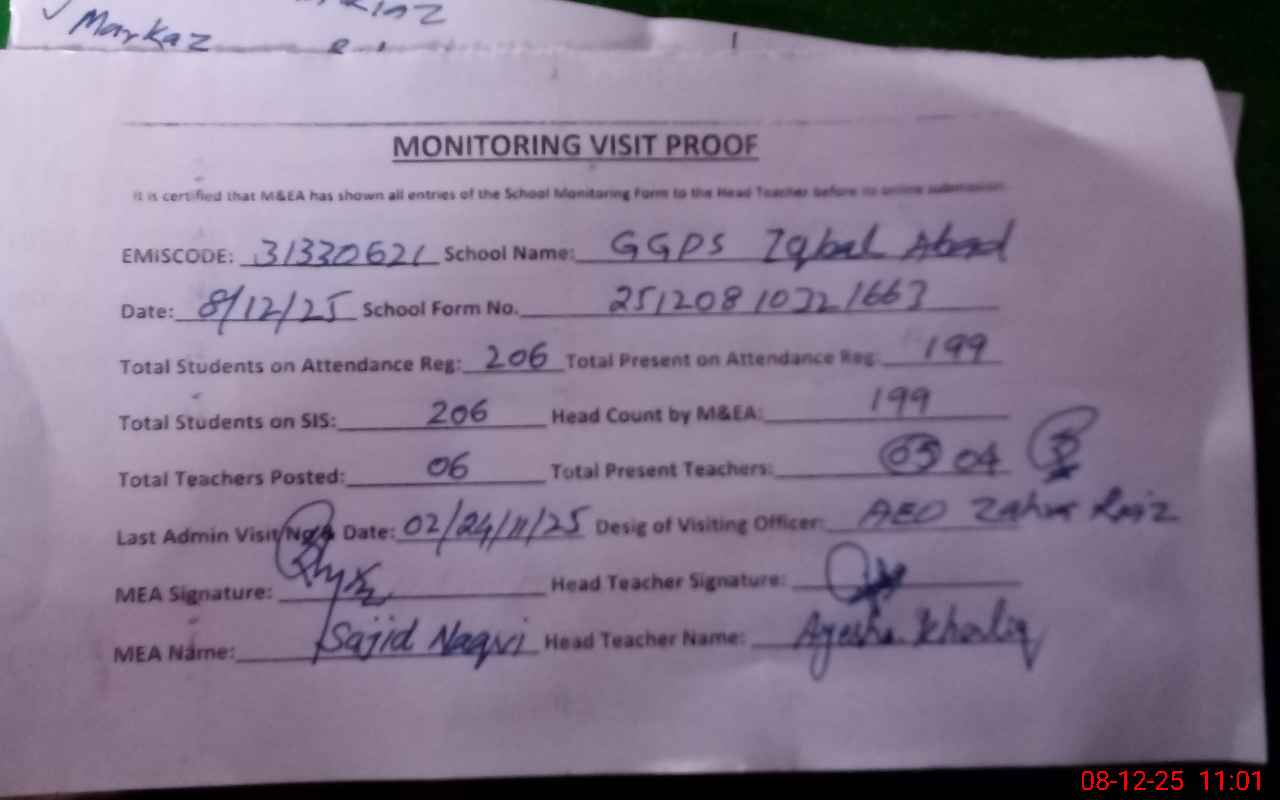 Markaz
MONITORING VISIT PROOF
It is certified that M&EA has shown all entries of the School Monitoring Form to the Head Teacher before its online submission.
EMISCODE: 31330621 School Name: GGPS Iqbal Abad
Date: 8/12/25 School Form No. 2512081032 1663
Total Students on Attendance Reg: 206 Total Present on Attendance Reg: 199
Total Students on SIS: 206 Head Count by M&EA: 199
Total Teachers Posted: 06 Total Present Teachers: 05 04
Last Admin Visit No & Date: 02/24/11/25 Desig of Visiting Officer: AEO Zahra Raiz
MEA Signature: Head Teacher Signature:
MEA Name: Sajid Naqvi Head Teacher Name: Ayesha Khaliq
08-12-25 11:01